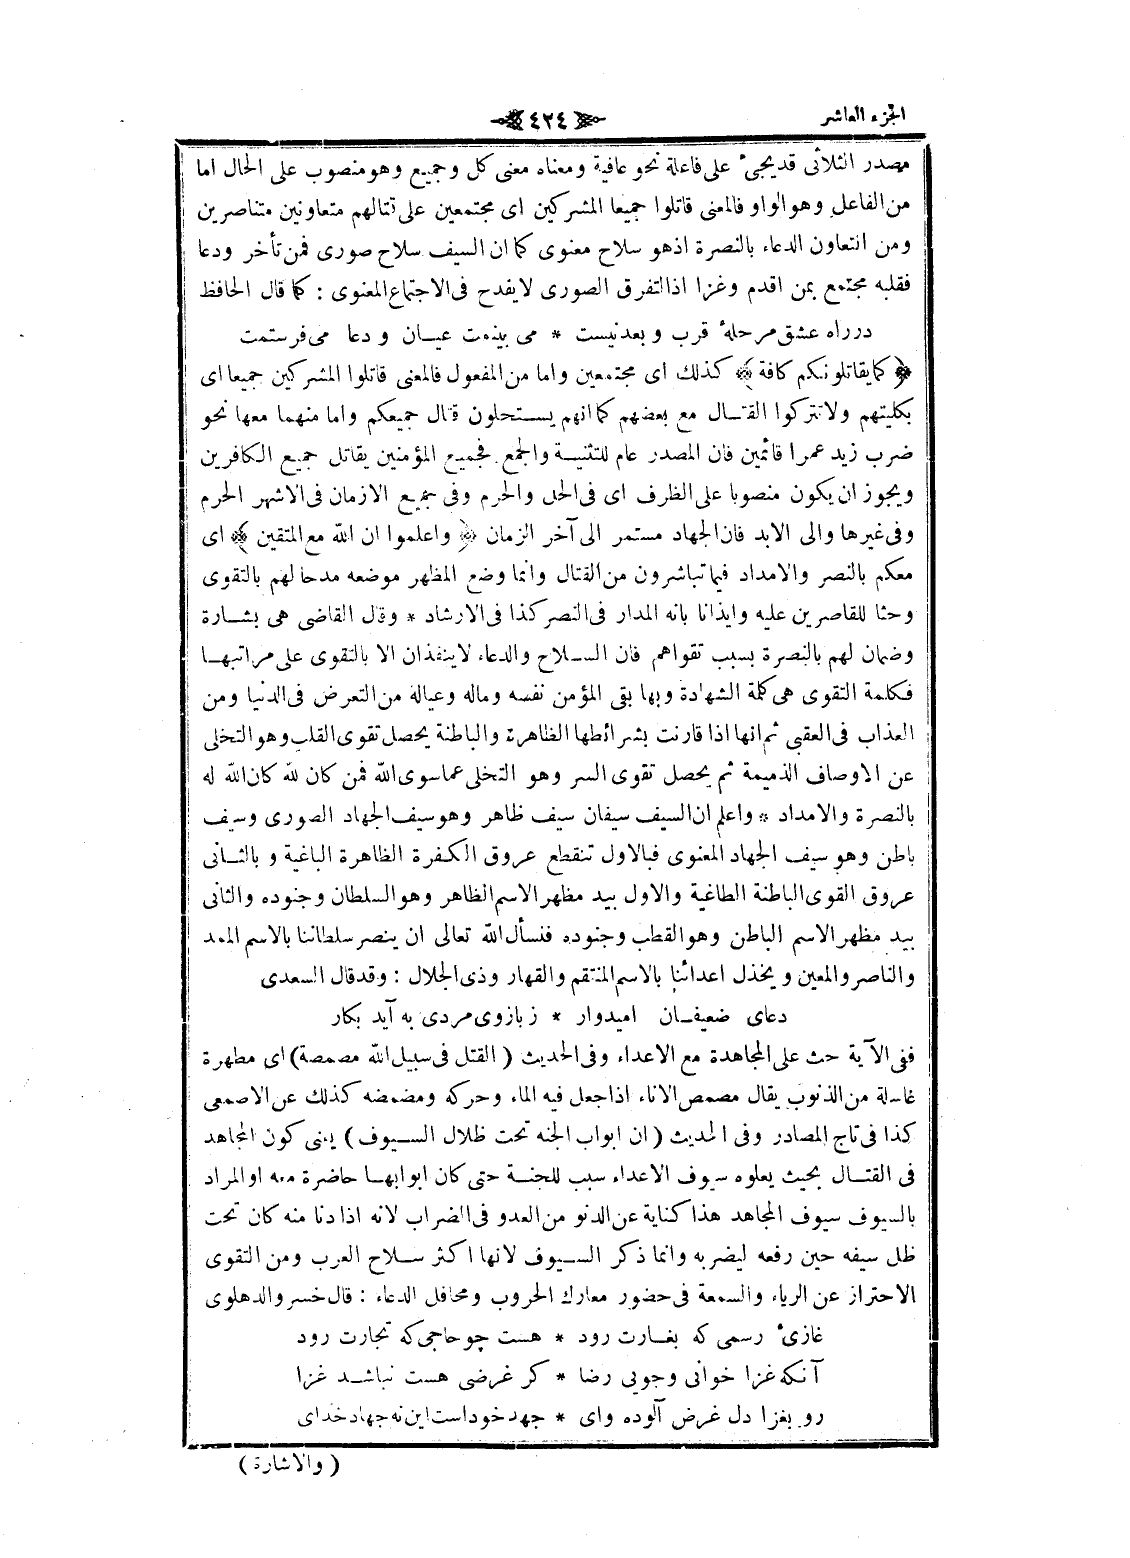 الجزء العاشر
﴿٤٢٤﴾
مصدر الثلاثى قديجىء على فاعلة نحو عافية ومعناه معنى كل وجميع وهو منصوب على الحال اما
من الفاعل وهو الواو فالمعنى قاتلوا جميعا المشركين اى مجتمعين على قتالهم متعاونين متناصرين
ومن التعاون الدعاء بالنصرة اذهو سلاح معنوى كما ان السيف سلاح صورى فمن تأخر ودعا
فقلبه مجتمع بمن اقدم وغزا اذ التفرق الصورى لا يقدح فى الاجتماع المعنوى : كما قال الحافظ
درراه عشق مرحلهٔ قرب و بعد نيست * مى بينمت عيان و دعا مى فرستمت
﴿ كما يقاتلونكم كافة ﴾ كذلك اى مجتمعين واما من المفعول فالمعنى قاتلوا المشركين جميعا اى
بكليتهم ولا تتركوا القتال مع بعضهم كما انهم يستحلون قتال جميعكم واما منهما معها نحو
ضرب زيد عمرا قائمين فان المصدر عام للتثنية والجمع فجميع المؤمنين يقاتل جميع الكافرين
ويجوز ان يكون منصوبا على الظرف اى فى الحل والحرم وفى جميع الازمان فى الاشهر الحرم
وفى غيرها والى الابد فان الجهاد مستمر الى آخر الزمان ﴿ واعلموا ان الله مع المتقين ﴾ اى
معكم بالنصر والامداد فيما تباشرون من القتال وانما وضع المظهر موضعه مدحا لهم بالتقوى
وحثا للقاصرين عليه وايذانا بانه المدار فى النصر كذا فى الارشاد * وقال القاضى هى بشارة
وضمان لهم بالنصرة بسبب تقواهم فان السلاح والدعاء لا ينفذان الا بالتقوى على مراتبها
فكلمة التقوى هى كلمة الشهادة وبها بقى المؤمن نفسه وماله وعياله من التعرض فى الدنيا ومن
العذاب فى العقبى ثم انها اذا قارنت بشرائطها الظاهرة والباطنة يحصل تقوى القلب وهو التخلى
عن الاوصاف الذميمة ثم يحصل تقوى السر وهو التخلى عما سوى الله فمن كان لله كان الله له
بالنصرة والامداد * واعلم ان السيف سيفان سيف ظاهر وهو سيف الجهاد الصورى وسيف
باطن وهو سيف الجهاد المعنوى فبالاول تنقطع عروق الكفرة الظاهرة الباغية و بالثانى
عروق القوى الباطنة الطاغية والاول بيد مظهر الاسم الظاهر وهو السلطان وجنوده والثانى
بيد مظهر الاسم الباطن وهو القطب وجنوده فنسأل الله تعالى ان ينصر سلطاننا بالاسم الممد
والناصر والمعين ويخذل اعدائنا بالاسم المنتقم والقهار وذى الجلال : وقدقال السعدى
دعاى ضعيفان اميدوار * زبازوى مردى به آيد بكار
ففى الآية حث على المجاهدة مع الاعداء وفى الحديث ( القتل فى سبيل الله مصمصة ) اى مطهرة
غاسلة من الذنوب يقال مصمص الاناء اذا جعل فيه الماء وحركه ومضمضه كذلك عن الاصمعى
كذا فى تاج المصادر وفى الحديث ( ان ابواب الجنه تحت ظلال السيوف ) يعنى كون المجاهد
فى القتال بحيث يعلوه سيوف الاعداء سبب للجنة حتى كان ابوابها حاضرة معه او المراد
بالسيوف سيوف المجاهد هذا كناية عن الدنو من العدو فى الضراب لانه اذا دنا منه كان تحت
ظل سيفه حين رفعه ليضربه وانما ذكر السيوف لانها اكثر سلاح العرب ومن التقوى
الاحتراز عن الرياء والسمعة فى حضور معارك الحروب ومحافل الدعاء : قال خسرو الدهلوى
غازىء رسمى كه بغارت رود * هست چو حاجى كه تجارت رود
آنكه غزا خوانى وجويى رضا * كر غرضى هست نباشد غزا
رو بغزا دل غرض آلوده واى * جهد خود است اين نه جهاد خداى
( والاشارة )